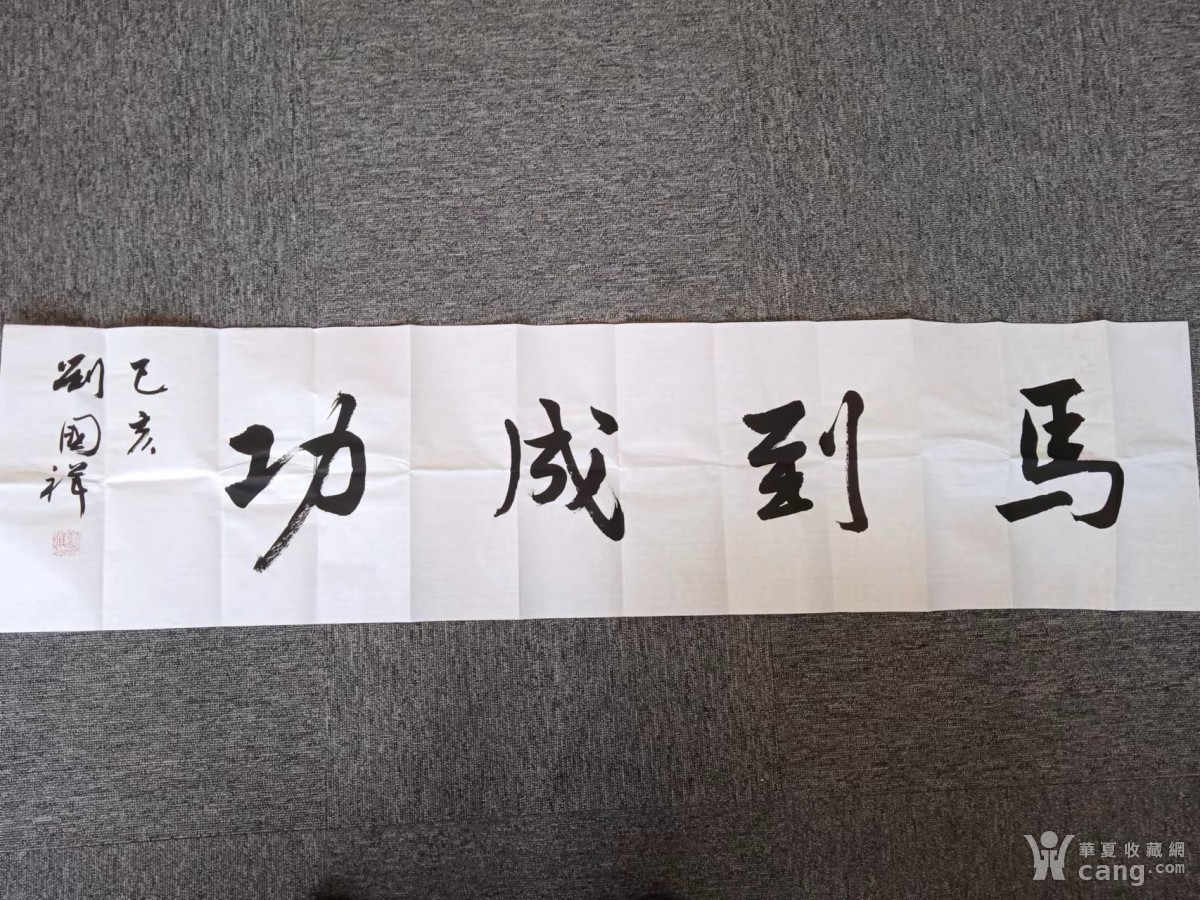 馬到成功
己亥
劉國祥
華夏收藏網
cang.com